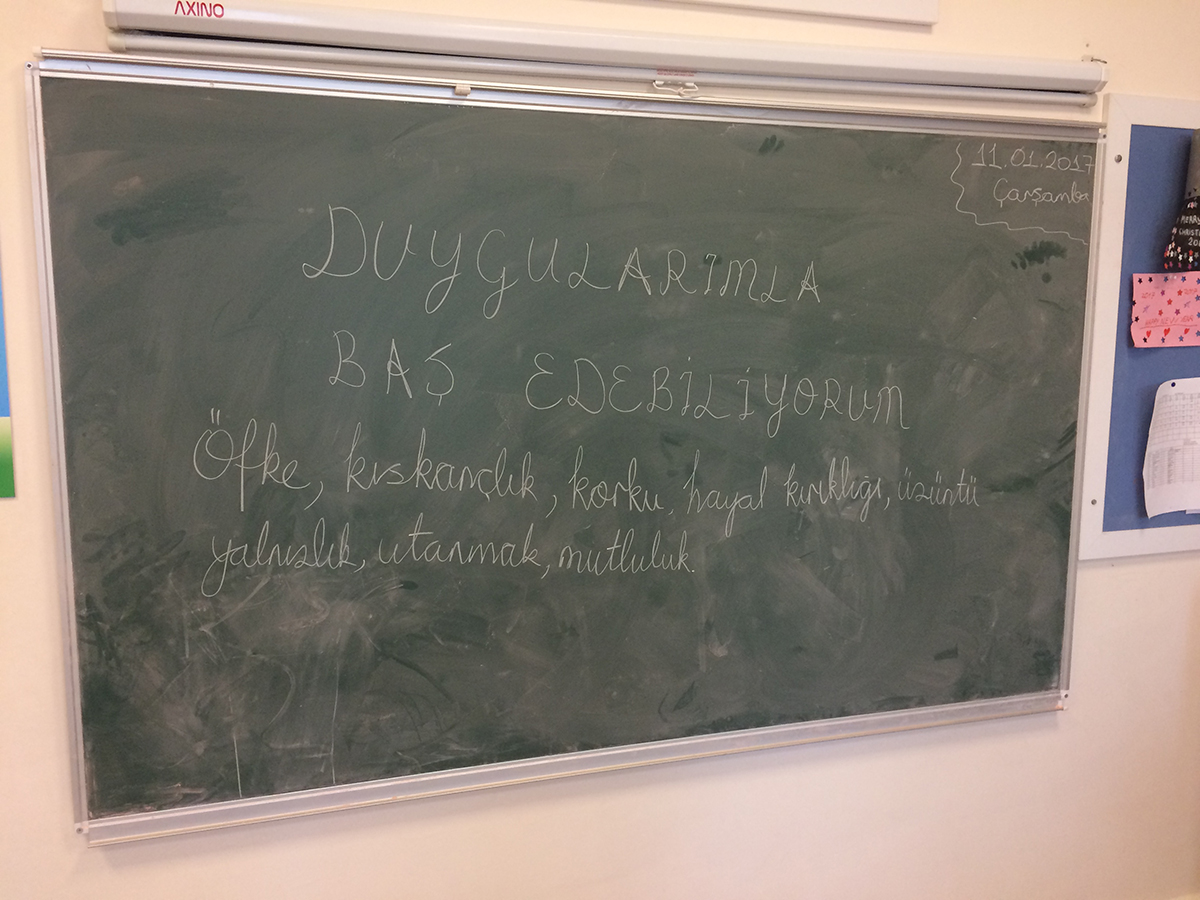 AXINO
11.01.2017
Çarşamba
DUYGULARIMLA
BAŞ EDEBİLİYORUM
Öfke, kıskançlık, korku, hayal kırıklığı, üzüntü
yalnızlık, utanmak, mutluluk.
MERRY
CHRIST